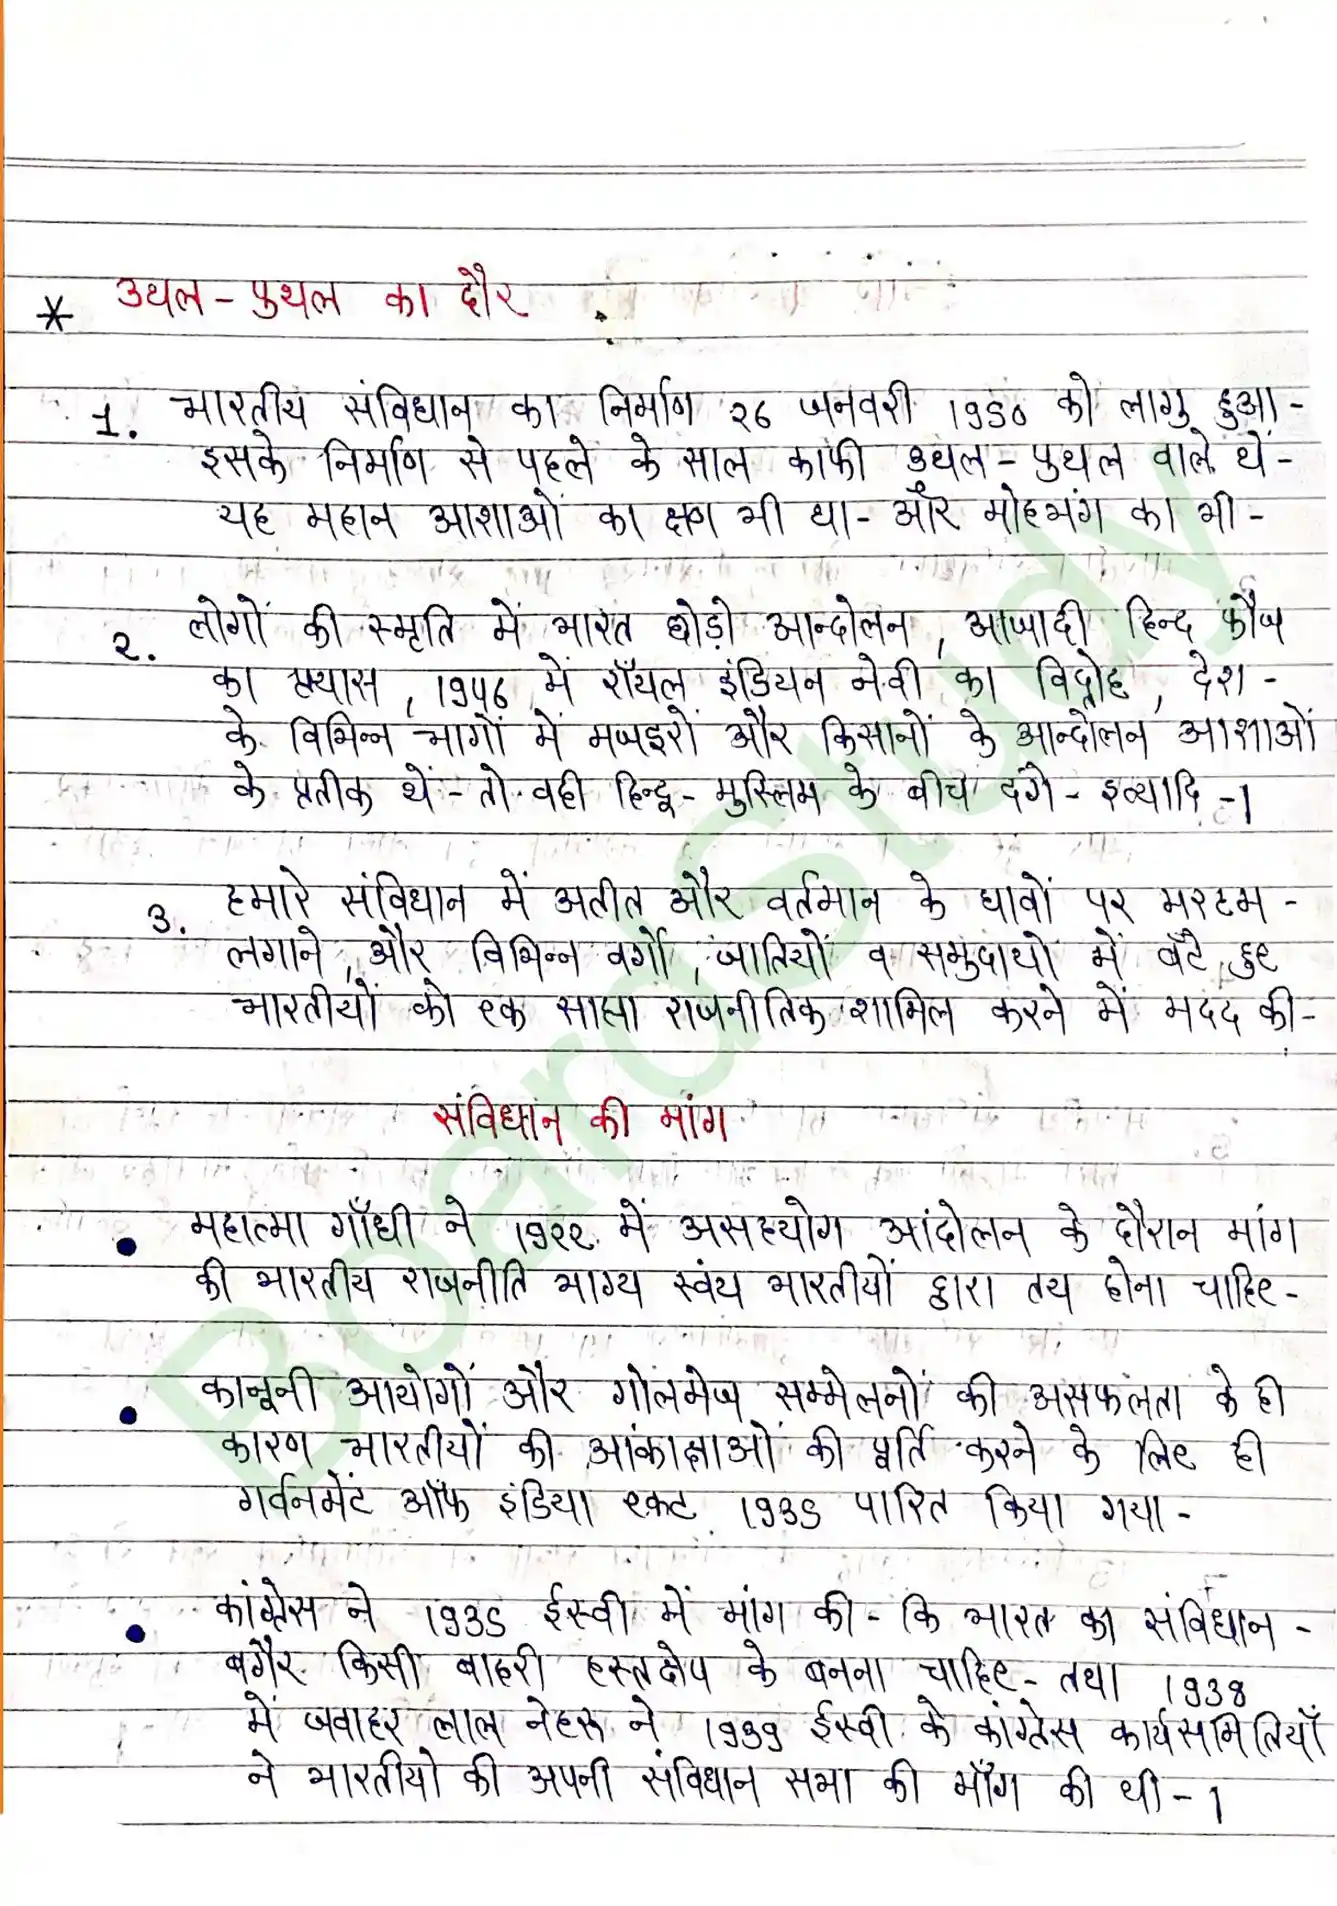 * उथल-पुथल का दौर
1. भारतीय संविधान का निर्माण 26 जनवरी 1950 को लागु हुआ-
इसके निर्माण से पहले के साल काफी उथल-पुथल वाले थे-
यह महान आशाओं का क्षण भी था- और मोहभंग का भी-
2. लोगों की स्मृति में भारत छोड़ो आन्दोलन, आजादी हिन्द फौज
का प्रयास, 1946 में रॉयल इंडियन नेवी का विद्रोह, देश-
के विभिन्न भागों में मजदूरों और किसानों के आन्दोलन आशाओं
के प्रतीक थें-तो वही हिन्दू-मुस्लिम के बीच दंगे- इत्यादि-1
3. हमारे संविधान में अतीत और वर्तमान के घावों पर मरहम-
लगाने, और विभिन्न वर्गों, जातियों व समुदायो में बँटे हुए
भारतीयों को एक साझा राजनीतिक शामिल करने में मदद की-
संविधान की मांग
• महात्मा गाँधी ने 1922 में असहयोग आंदोलन के दौरान मांग
की भारतीय राजनीति भाग्य स्वंय भारतीयों द्वारा तय होना चाहिए-
• कानूनी आयोगों और गोलमेज सम्मेलनों की असफलता के ही
कारण भारतीयों की आंकाक्षाओं की पूर्ति करने के लिए ही
गर्वनमेंट ऑफ इंडिया एक्ट 1935 पारित किया गया-
• कांग्रेस ने 1935 ईस्वी में मांग की- कि भारत का संविधान-
बगैर किसी बाहरी हस्तक्षेप के बनना चाहिए- तथा 1938
में जवाहर लाल नेहरू ने 1939 ईस्वी के कांग्रेस कार्यसमितियाँ
ने भारतीयो की अपनी संविधान सभा की माँग की थी-1
BoardStudy